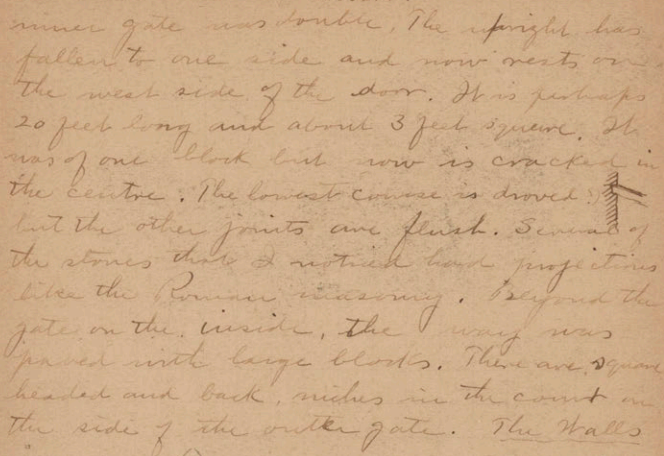 inner gate was double. The upright has
fallen to one side and now rests on
the west side of the door. It is perhaps
20 feet long and about 3 feet square. It
was of one block but now is cracked in
the centre. The lowest course is droved
but the other joints are flush. Several of
the stones that I noticed had projections
like the Roman masonry. Beyond the
gate on the inside, the way was
paved with large blocks. There are square
headed and back niches in the court on
the side of the outer gate. The Walls